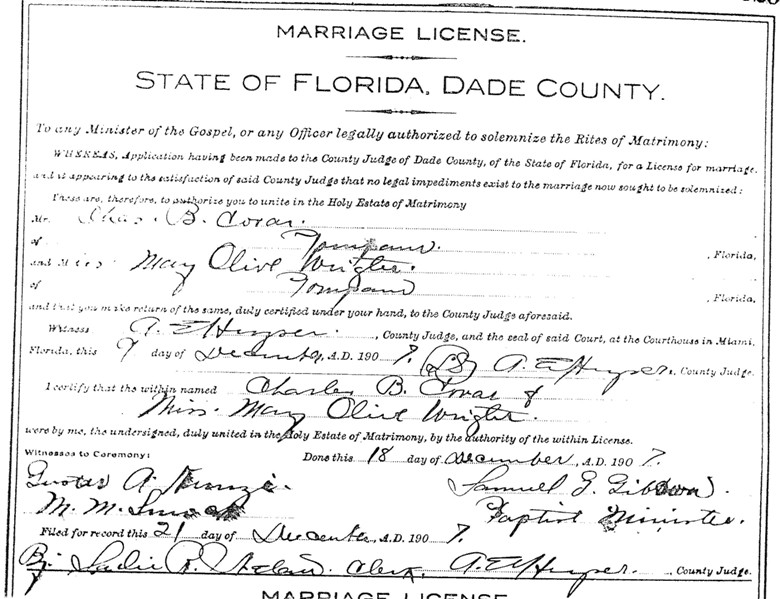 MARRIAGE LICENSE.
STATE OF FLORIDA, DADE COUNTY.
To any Minister of the Gospel, or any Officer legally authorized to solemnize the Rites of Matrimony:
WHEREAS, Application having been made to the County Judge of Dade County, of the State of Florida, for a License for marriage,
and it appearing to the satisfaction of said County Judge that no legal impediments exist to the marriage now sought to be solemnized:
These are, therefore, to authorize you to unite in the Holy Estate of Matrimony
Mr. Chas. B.
of Pompano. , Florida,
and Miss May Olive
of Pompano , Florida,
and that you make return of the same, duly certified under your hand, to the County Judge aforesaid.
Witness A. E. , County Judge, and the seal of said Court, at the Courthouse in Miami,
Florida, this 9 day of December, A.D. 190 7. (LS) A. E. , County Judge.
I certify that the within named Charles B. &
Miss. May Olive
were by me, the undersigned, duly united in the Holy Estate of Matrimony, by the authority of the within License.
Witnesses to Ceremony: Done this 18 day of December, A.D. 190 7.
A. Samuel J.
M. M. Baptist Minister.
Filed for record this 21 day of December, A.D. 190 7.
By Clerk. A. E. , County Judge.
MARRIAGE LICENSE